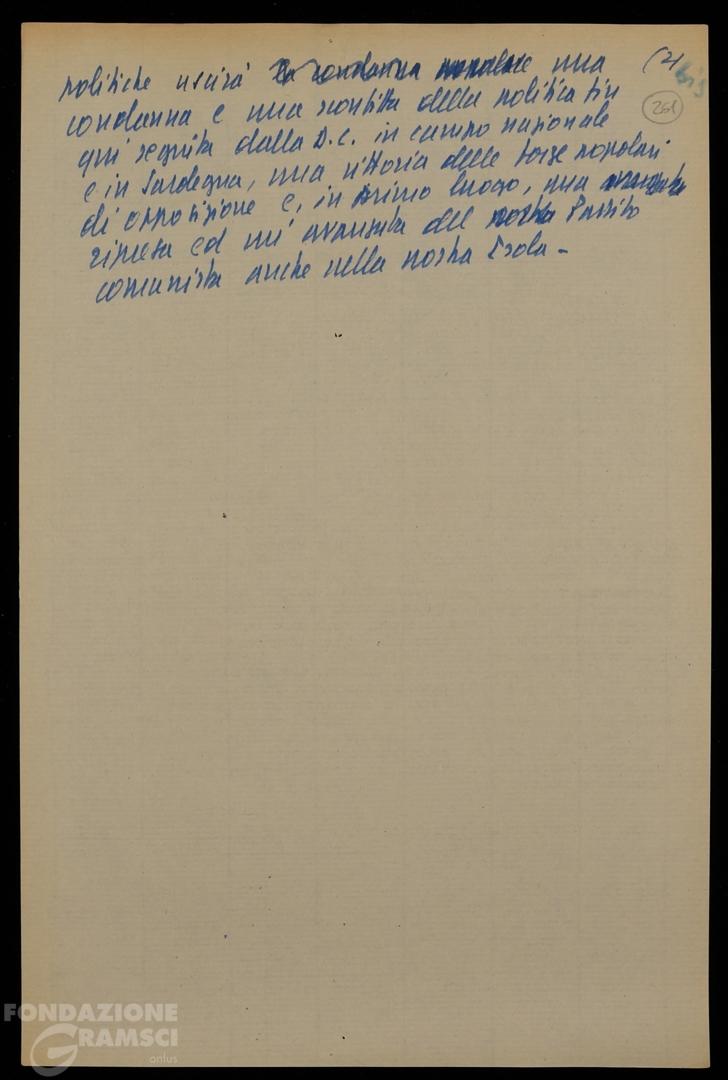 politiche uscirà la condanna popolare una (2) bis
condanna e una sconfitta della politica fin 261
qui seguita dalla D.C. in campo nazionale
e in Sardegna, una vittoria delle forze popolari
di opposizione e, in primo luogo, una avanzata
ripresa ed un' avanzata del nostro Partito
comunista anche nella nostra Isola -
FONDAZIONE
GRAMSCI
onlus